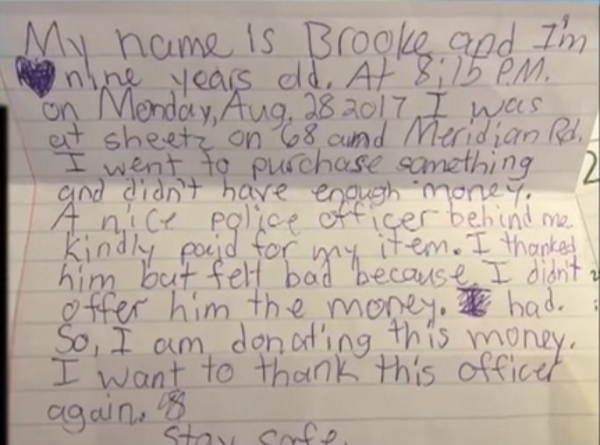 My name is Brooke and I'm
nine years old. At 8:15 P.M.
on Monday, Aug. 28 2017 I was
at sheetz on 68 and Meridian Rd.
I went to purchase something
and didn't have enough money.
A nice police officer behind me
kindly paid for my item. I thanked
him but felt bad because I didn't
offer him the money. I had.
So, I am donating this money.
I want to thank this officer
again.
Stay safe.